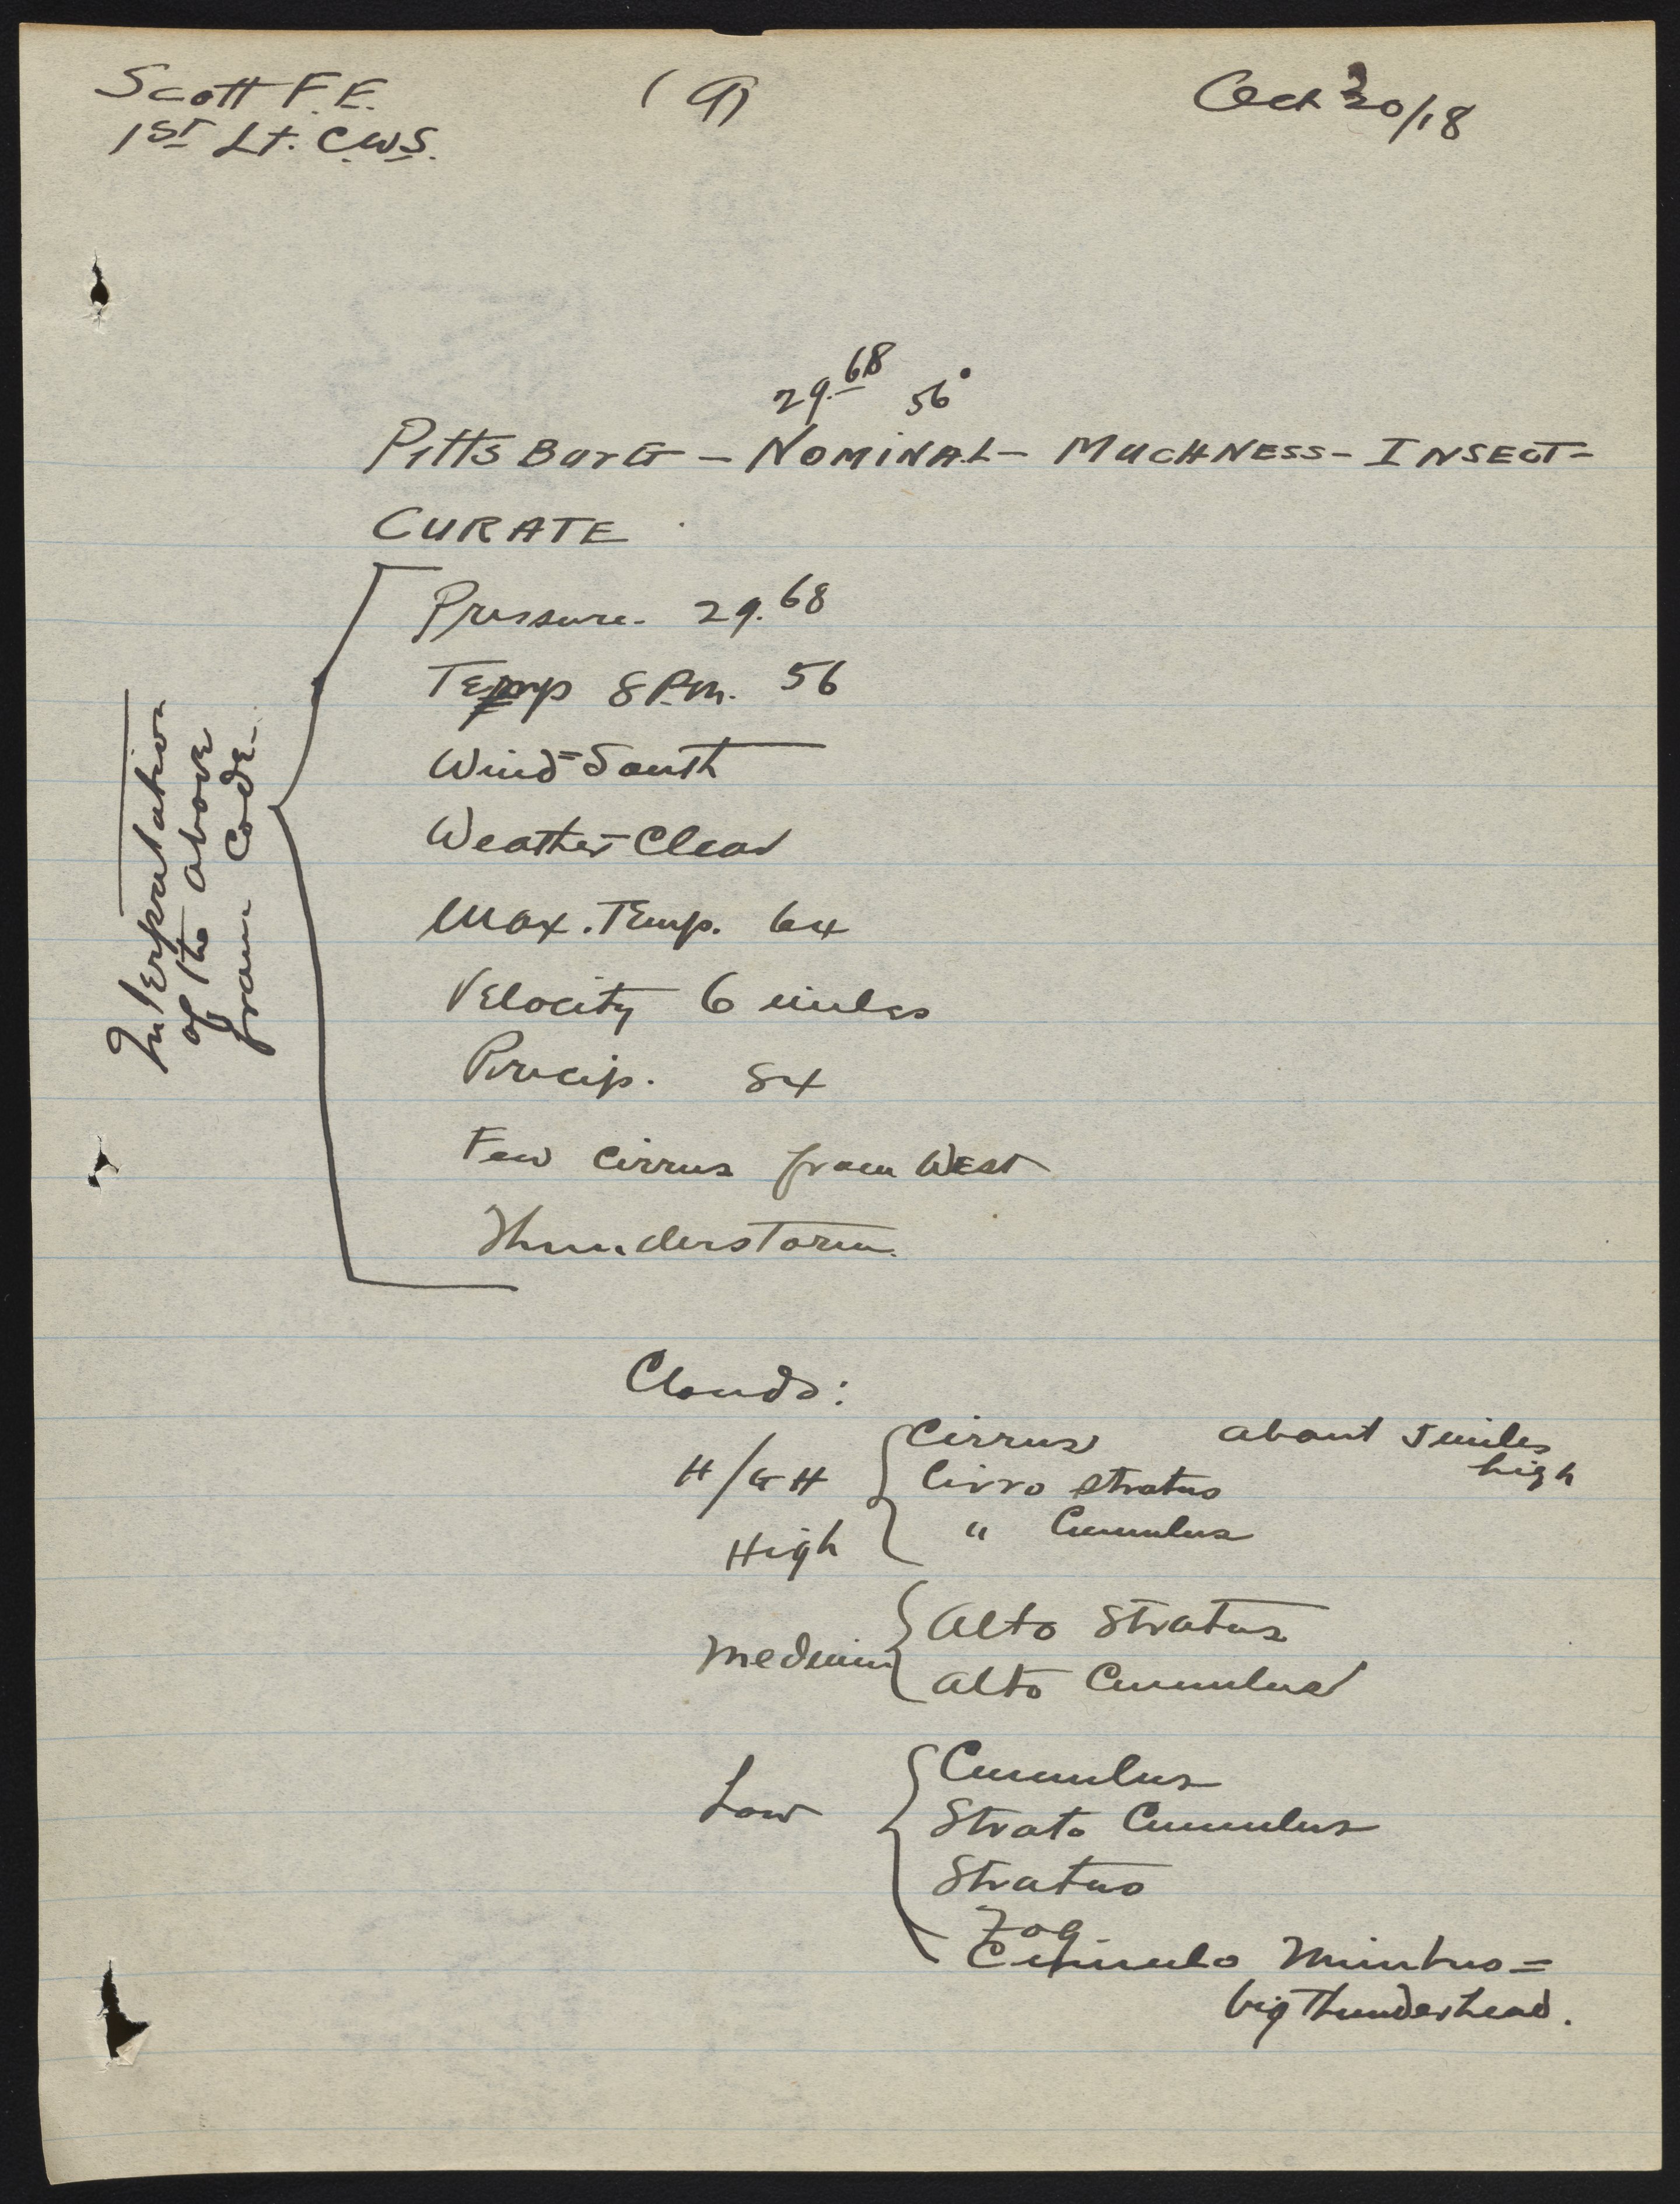 Scott F.E. (9) Oct 30/18
1st Lt. C.W.S.
29.68 56°
PittsBurG - NOMINAL - MUCHNESS - INSECT -
CURATE
Interpretation
of the above
from Code.
Pressure. 29.68
Temp 8 P.m. 56
Wind = South
Weather - Clear
Max. Temp. 64
Velocity 6 miles
Precip. 84
Few cirrus from West
Thunderstorm.
Clouds:
Cirrus about 5 miles
high
HIGH Cirro stratus
" Cumulus
High
Alto Stratus
Medium
alto Cumulus
Cumulus
Low
Strato Cumulus
Stratus
Fog
Cumulo Nimbus =
big Thunderhead.